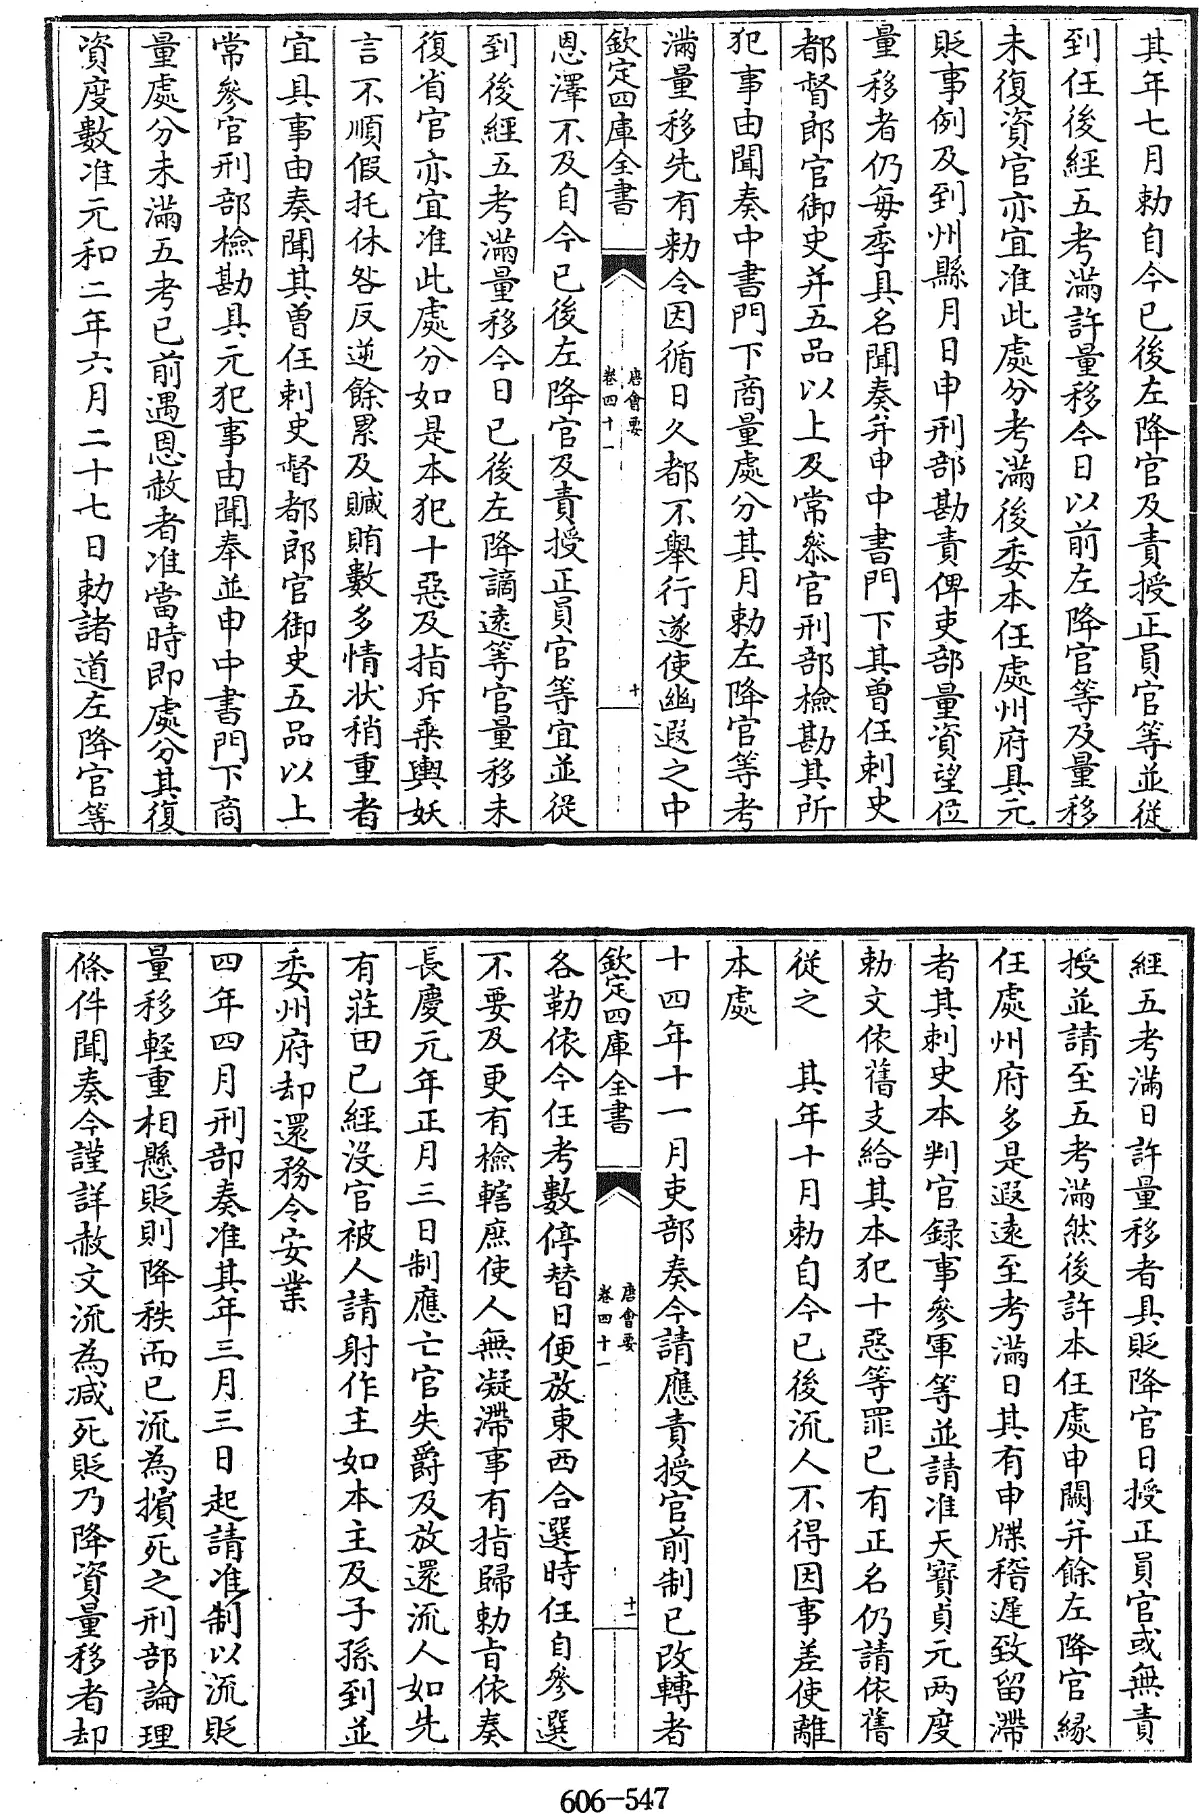 其年七月勅自今已後左降官及責授正員官等並從
到任後經五考滿許量移今日以前左降官等及量移
未復資官亦宜准此處分考滿後委本任處州府具元
貶事例及到州縣月日申刑部勘責俾吏部量資望位
量移者仍每季具名聞奏并申中書門下其曾任刺史
都督郎官御史并五品以上及常叅官刑部檢勘其所
犯事由聞奏中書門下商量處分其月勅左降官等考
滿量移先有勅令因循日久都不舉行遂使幽遐之中
欽定四庫全書
唐會要
卷四十一
十
恩澤不及自今已後左降官及責授正員官等宜並從
到後經五考滿量移今日已後左降謫逺等官量移未
復省官亦宜准此處分如是本犯十惡及指斥乘輿妖
言不順假托休咎反逆餘累及贓賄數多情狀稍重者
宜具事由奏聞其曾任刺史督都郎官御史五品以上
常參官刑部檢勘具元犯事由聞奉並申中書門下商
量處分未滿五考已前遇恩赦者准當時即處分其復
資度數准元和二年六月二十七日勅諸道左降官等
經五考滿日許量移者具貶降官日授正員官或無責
授並請至五考滿然後許本任處申闕并餘左降官縁
任處州府多是遐逺至考滿日其有申牒稽遲致留滯
者其刺史本判官録事參軍等並請准天寶貞元两度
勅文依舊支給其本犯十惡等罪已有正名仍請依舊
從之　其年十月勅自今已後流人不得因事差使離
本處
十四年十一月吏部奏今請應責授官前制已改轉者
欽定四庫全書
唐會要
卷四十一
十一
各勒依今任考數停替日便放東西合選時任自參選
不要及更有檢轄庶使人無凝滯事有指歸勅旨依奏
長慶元年正月三日制應亡官失爵及放還流人如先
有莊田已經没官被人請射作主如本主及子孫到並
委州府却還務令安業
四年四月刑部奏准其年三月三日起請准制以流貶
量移輕重相懸貶則降秩而已流為擯死之刑部論理
條件聞奏今謹詳赦文流為减死貶乃降資量移者却
606-547